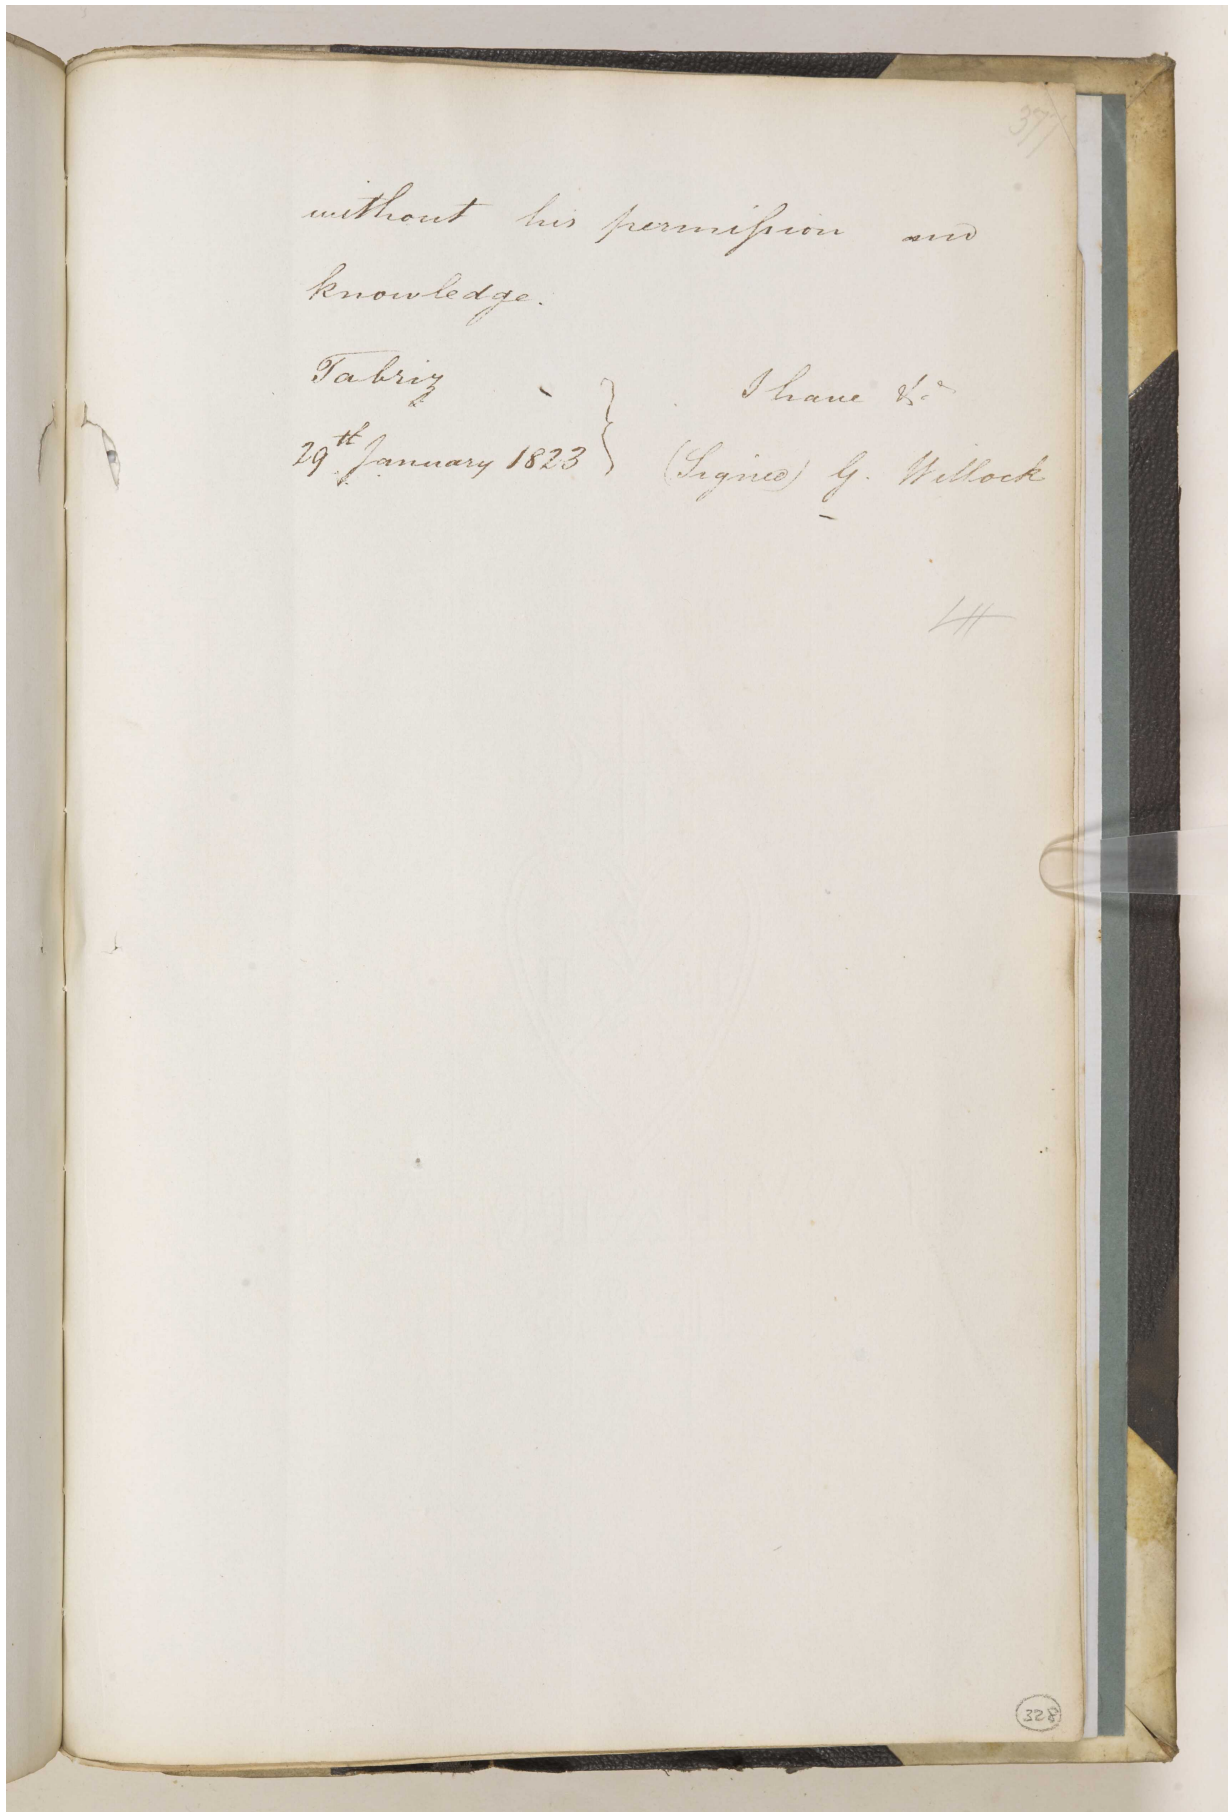 377
without his permiſsion and
knowledge.
Tabriz
I have &c.a
29th January 1823
(Signed) G. Willock
328